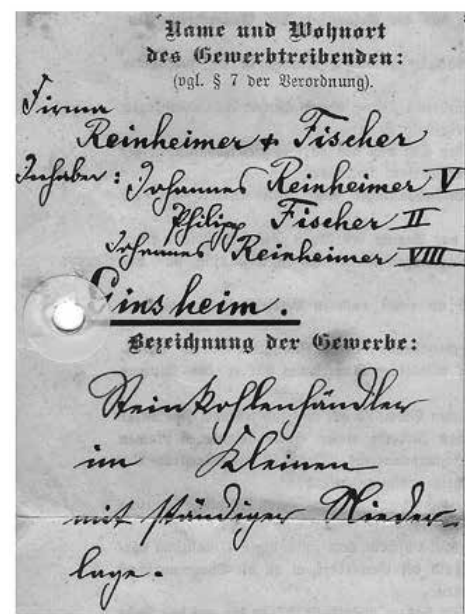 Name und Wohnort
des Gewerbtreibenden:
(vgl. § 7 der Verordnung).
Firma
Reinheimer + Fischer
Inhaber: Johannes Reinheimer V
Philipp Fischer II
Johannes Reinheimer VIII
Ginsheim.
Bezeichnung der Gewerbe:
Steinkohlenhändler
im Kleinen
mit ständiger Nieder-
lage.